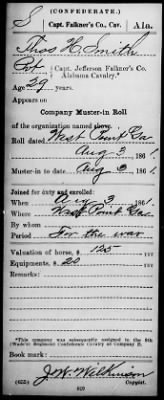 (CONFEDERATE.)
S Capt. Falkner's Co., Cav. Ala.
Thos H. Smith
Pvt, Capt. Jefferson Falkner's Co. Alabama Cavalry.*
Age 29 years.
Appears on
Company Muster-in Roll
of the organization named above.
Roll dated West Point Ga
Aug 3, 1861.
Muster-in to date Aug 3, 1861
Joined for duty and enrolled:
When Aug 3, 1861.
Where West Point Ga.
By whom
Period For the war
Valuation of horse, $ 125
Equipments, $ 20
Remarks:
*This company was subsequently assigned to the 8th (Wade's) Regiment Confederate Cavalry as Company B.
Book mark:
J. W. Wilkinson
Copyist.